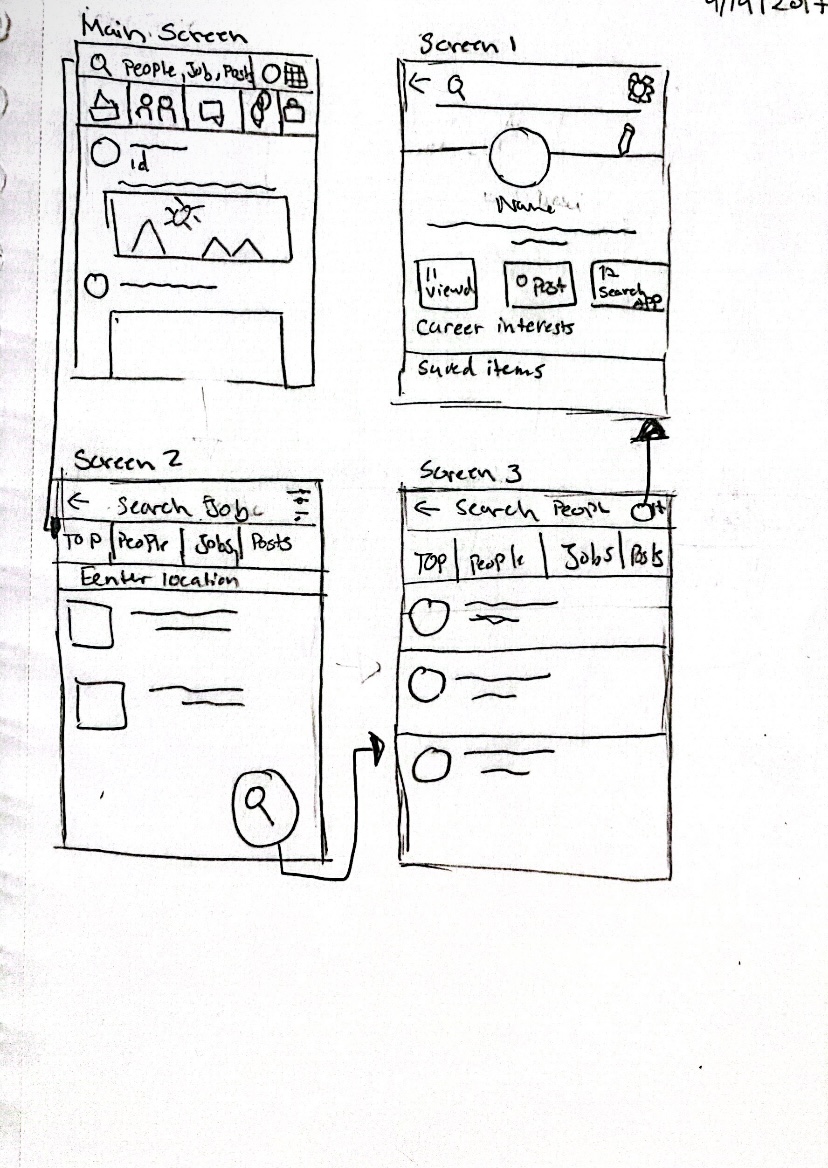 9/19/2017
Main Screen
People, Job, Posts
id
Screen 1
Name
11
Viewd
0 Post
12
Search
App
Career interests
Saved items
Screen 2
Search Job
TOP People Jobs Posts
Eenter location
Screen 3
Search People
TOP People Jobs Posts